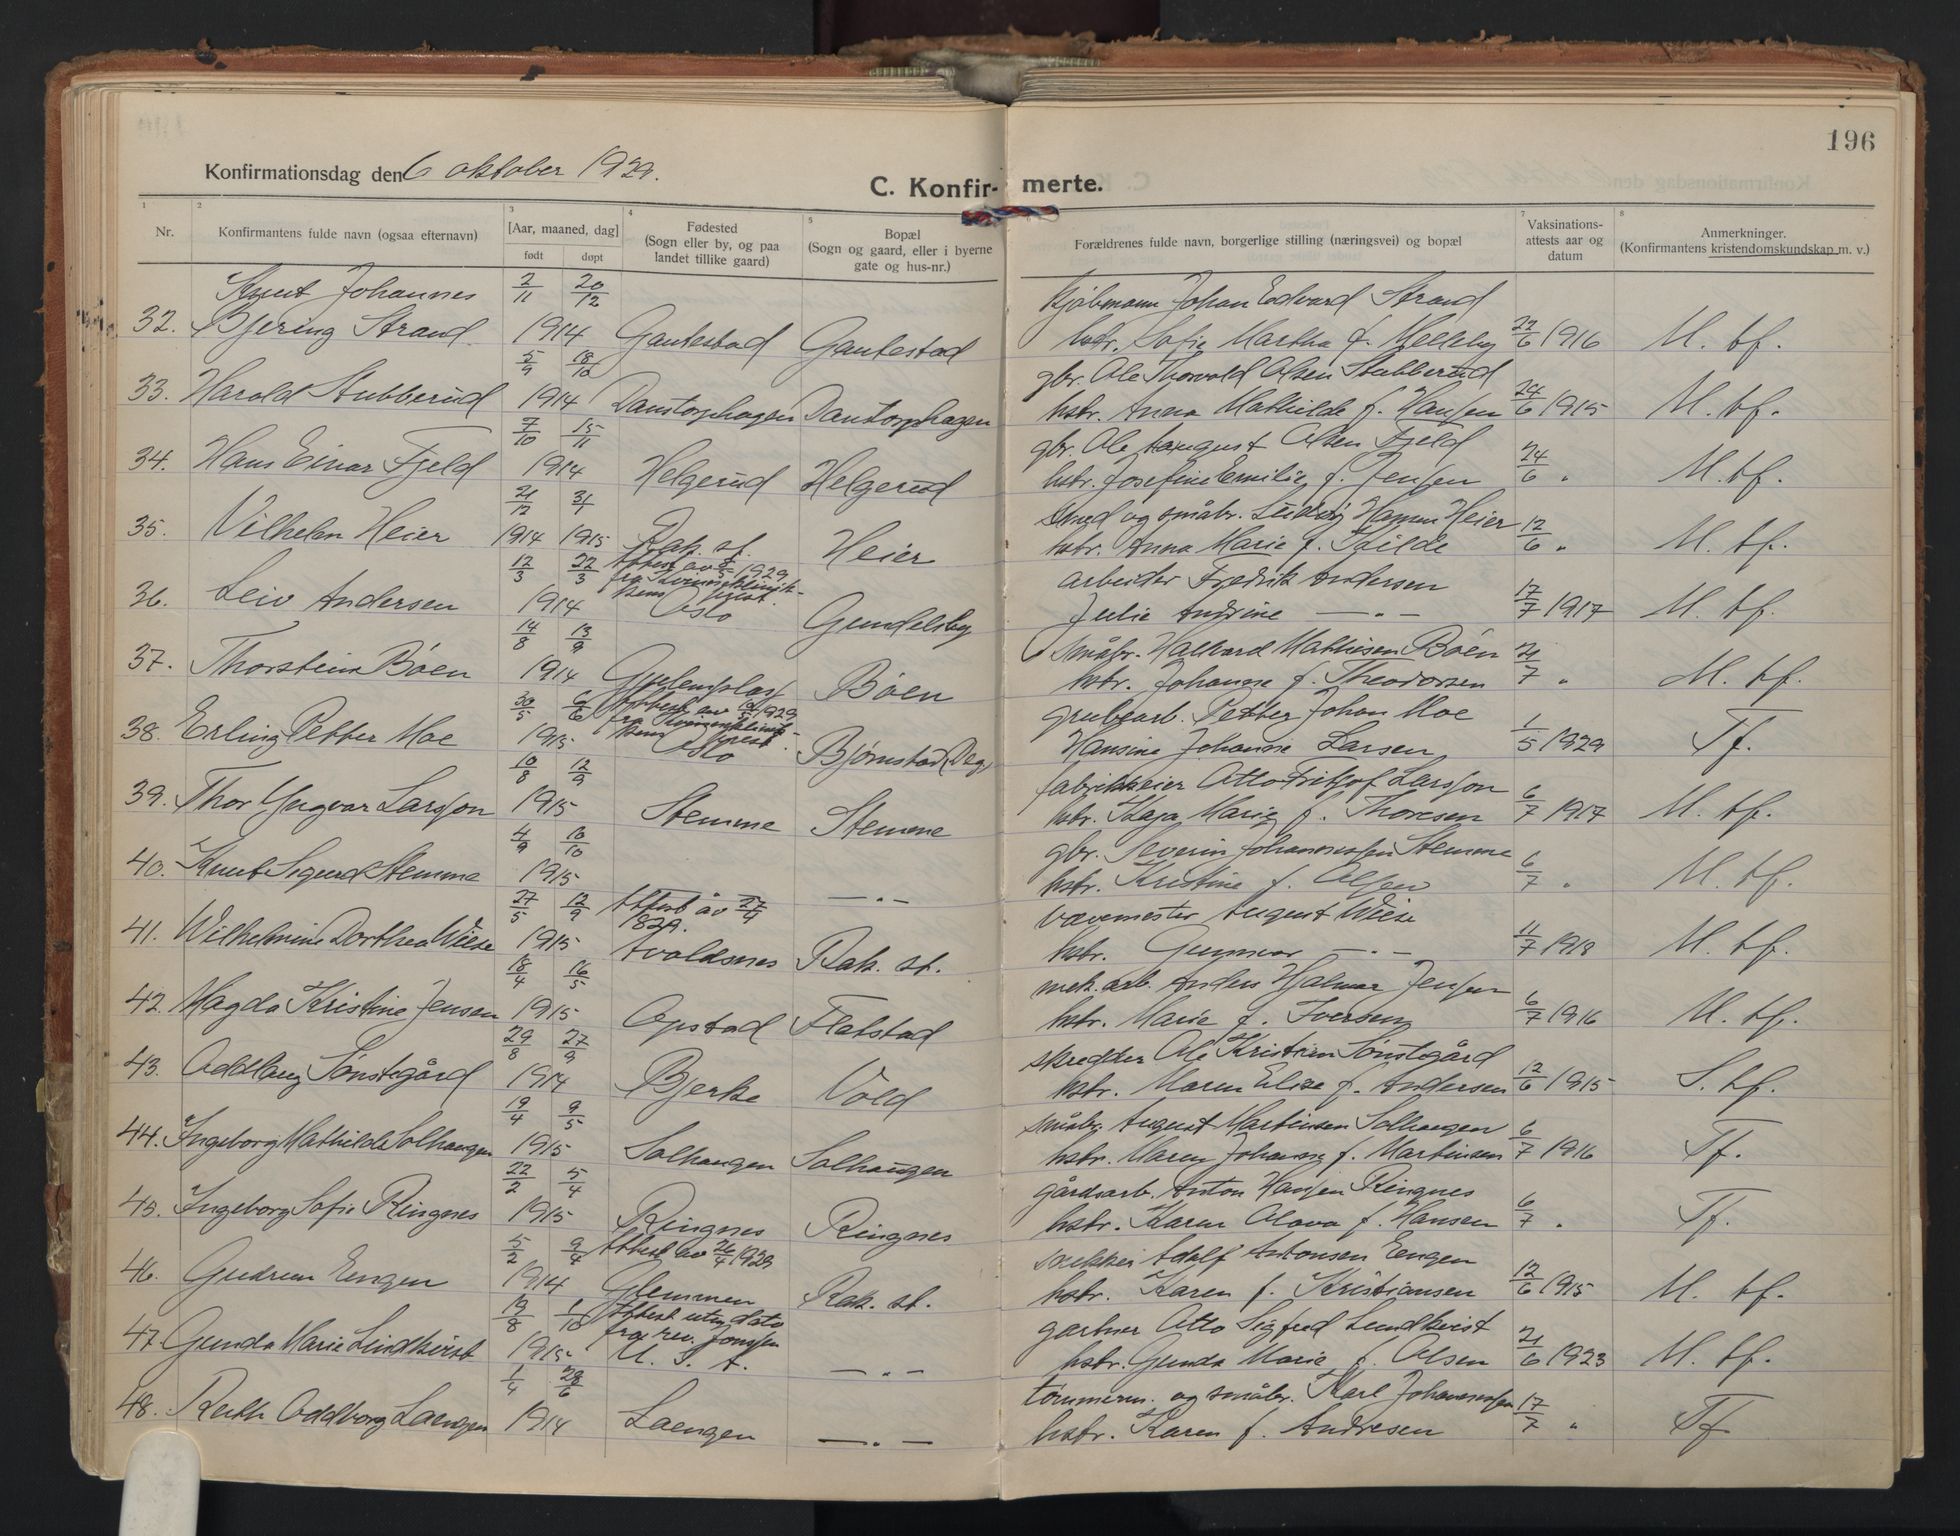 196
Konfirmationsdag den 6 oktober 1929.
C. Konfir- merte.
1 2 3 4 5 7 8
Nr. Konfirmantens fulde navn (ogsaa efternavn) [Aar, maaned, dag] født døpt Fødested (Sogn eller by, og paa landet tillike gaard) Bopæl (Sogn og gaard, eller i byerne gate og hus-nr.) Forældrenes fulde navn, borgerlige stilling (næringsvei) og bopæl Vaksinationsattests aar og datum Anmerkninger. (Konfirmantens kristendomskundskap m. v.)
Knut Johannes 2/11 20/12 Kjøbmann Johan Edvard Strand
32. Bjering Strand 1914 Gautestad Gautestad hstr. Sofie Martha f. Melleby 22/6 1916 M. tf.
5/9 18/10 gbr. Ole Thorvald Olsen Stubberud
33. Harald Stubberud 1914 Danstorphagen Danstorphagen hstr. Anna Mathilde f. Hansen 24/6 1915 M. tf.
7/10 15/11 gbr. Ole August Olsen Fjeld
34. Hans Einar Fjeld 1914 Helgerud Helgerud hstr. Josefine Emilie f. Jensen 24/6 " M. tf.
21/12 3/1 Smed og småbr. Ludvig Hansen Heier
35. Vilhelm Heier 1914 1915 Rak. st. Heier hstr. Anna Marie f. Kilde 12/6 " M. tf.
12/3 22/3 Attest av 1929 fra Kvinneklinikkens prest. arbeider Fredrik Andersen
36. Leiv Andersen 1914 Oslo Gundelsby Julie Andrine — " — 17/7 1917 M. tf.
14/8 13/9 småbr. Halvard Mathisen Bøen
37. Thorstein Bøen 1914 Bøen hstr. Johanne f. Theodorsen 21/7 " M. tf.
30/5 6/6 Attest av 1929 fra Kvinneklinikkens prest. grubearb. Petter Johan Moe
38. Erling Petter Moe 1915 Oslo Bjørnstad (Deg) Hansine Johanne Larsen 1/5 1929 Tf.
10/8 12/9 fabrikkeier Otto Fritjof Larsson
39. Thor Yngvar Larsson 1915 Stemme Stemme hstr. Kaja Marie f. Thoresen 6/7 1917 M. tf.
4/9 10/10 gbr. Severin Johannessen Stemme
40. Knut Sigurd Stemme 1915 — " — hstr. Kristine f. Olsen 6/7 " M. tf.
27/5 12/9 Attest av 27/9 1829. Vævemester August Wiese
41. Wilhelmine Dorthea Wiese 1915 Avaldsnes Rak. st. hstr. Gunnvor — " — 11/7 1918 M. tf.
18/4 16/5 mek. arb. Anders Hjalmar Jensen
42. Magda Kristine Jensen 1915 Opstad Flatstad hstr. Marie f. Iversen 6/7 1916 M. tf.
29/8 27/9 skredder Ole Kristian Sønstegård
43. Oddlaug Sønstegård 1914 Bjerke Vold hstr. Maren Elise f. Andersen 12/6 1915 S. tf.
19/4 9/5 småbr. August Martinsen Solhaugen
44. Ingeborg Mathilde Solhaugen 1915 Solhaugen Solhaugen hstr. Maren Johanne f. Martinsen 6/7 1916 Tf.
22/2 5/4 gårdsarb. Anton Hansen Ringnes
45. Ingeborg Sofie Ringnes 1915 Ringnes Ringnes hstr. Karen Olava f. Hansen 6/7 " Tf.
5/2 9/4 Attest av 26/4 1929 snekker Adolf Antonsen Eengen
46. Gudrun Eengen 1914 Glemmen Rak. st. hstr. Karen f. Kristiansen 12/6 1915 M. tf.
19/8 1/10 Attest uten dato fra rev. Jonssen gartner Otto Sigfred Lundkvist
47. Gunda Marie Lindkvist 1915 U. S. A. — " — hstr. Gunda Marie f. Olsen 21/6 1923 M. tf.
1/4 28/6 tømmerm. og småbr. Karl Johannessen
48. Ruth Oddborg Laengen 1914 Laengen — " — hstr. Karen f. Andresen 17/7 " Tf.